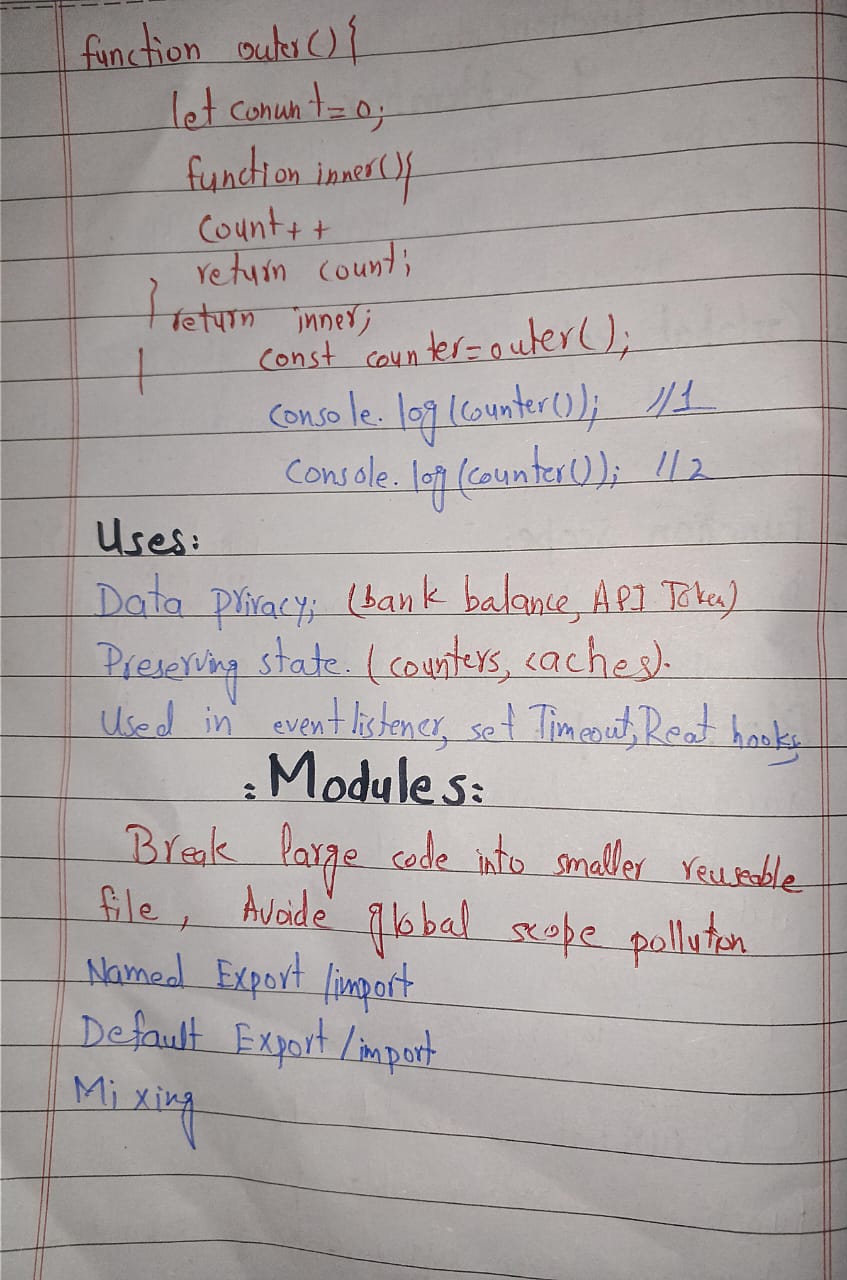 function outer() {
let conunt=0;
function inner(){
count++
return count;
}
return inner;
}
const counter=outer();
console.log(counter()); //1
Console.log(counter()); //2
Uses:
Data privacy; (bank balance, API Token)
Preserving state. (counters, caches).
Used in event listener, set Timeout, Reat hooks
: Modules:
Break large code into smaller reuseable
file, Avoide global scope polluton
Named Export /import
Default Export /import
Mixing